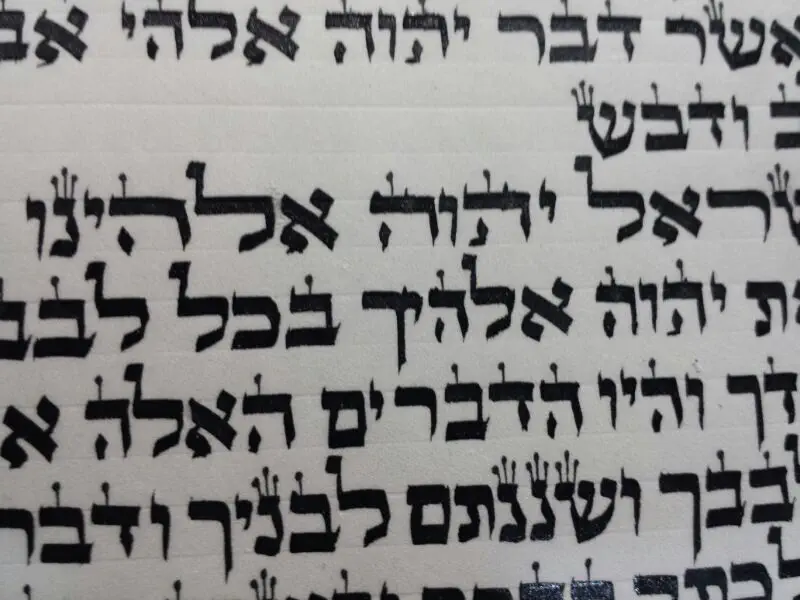 אשר דבר יהוה אלהי אב
ב ודבש
שראל יהוה אלהינו
ת יהוה אלהיך בכל לבב
דך והיו הדברים האלה א
לבבך ושננתם לבניך ודבר